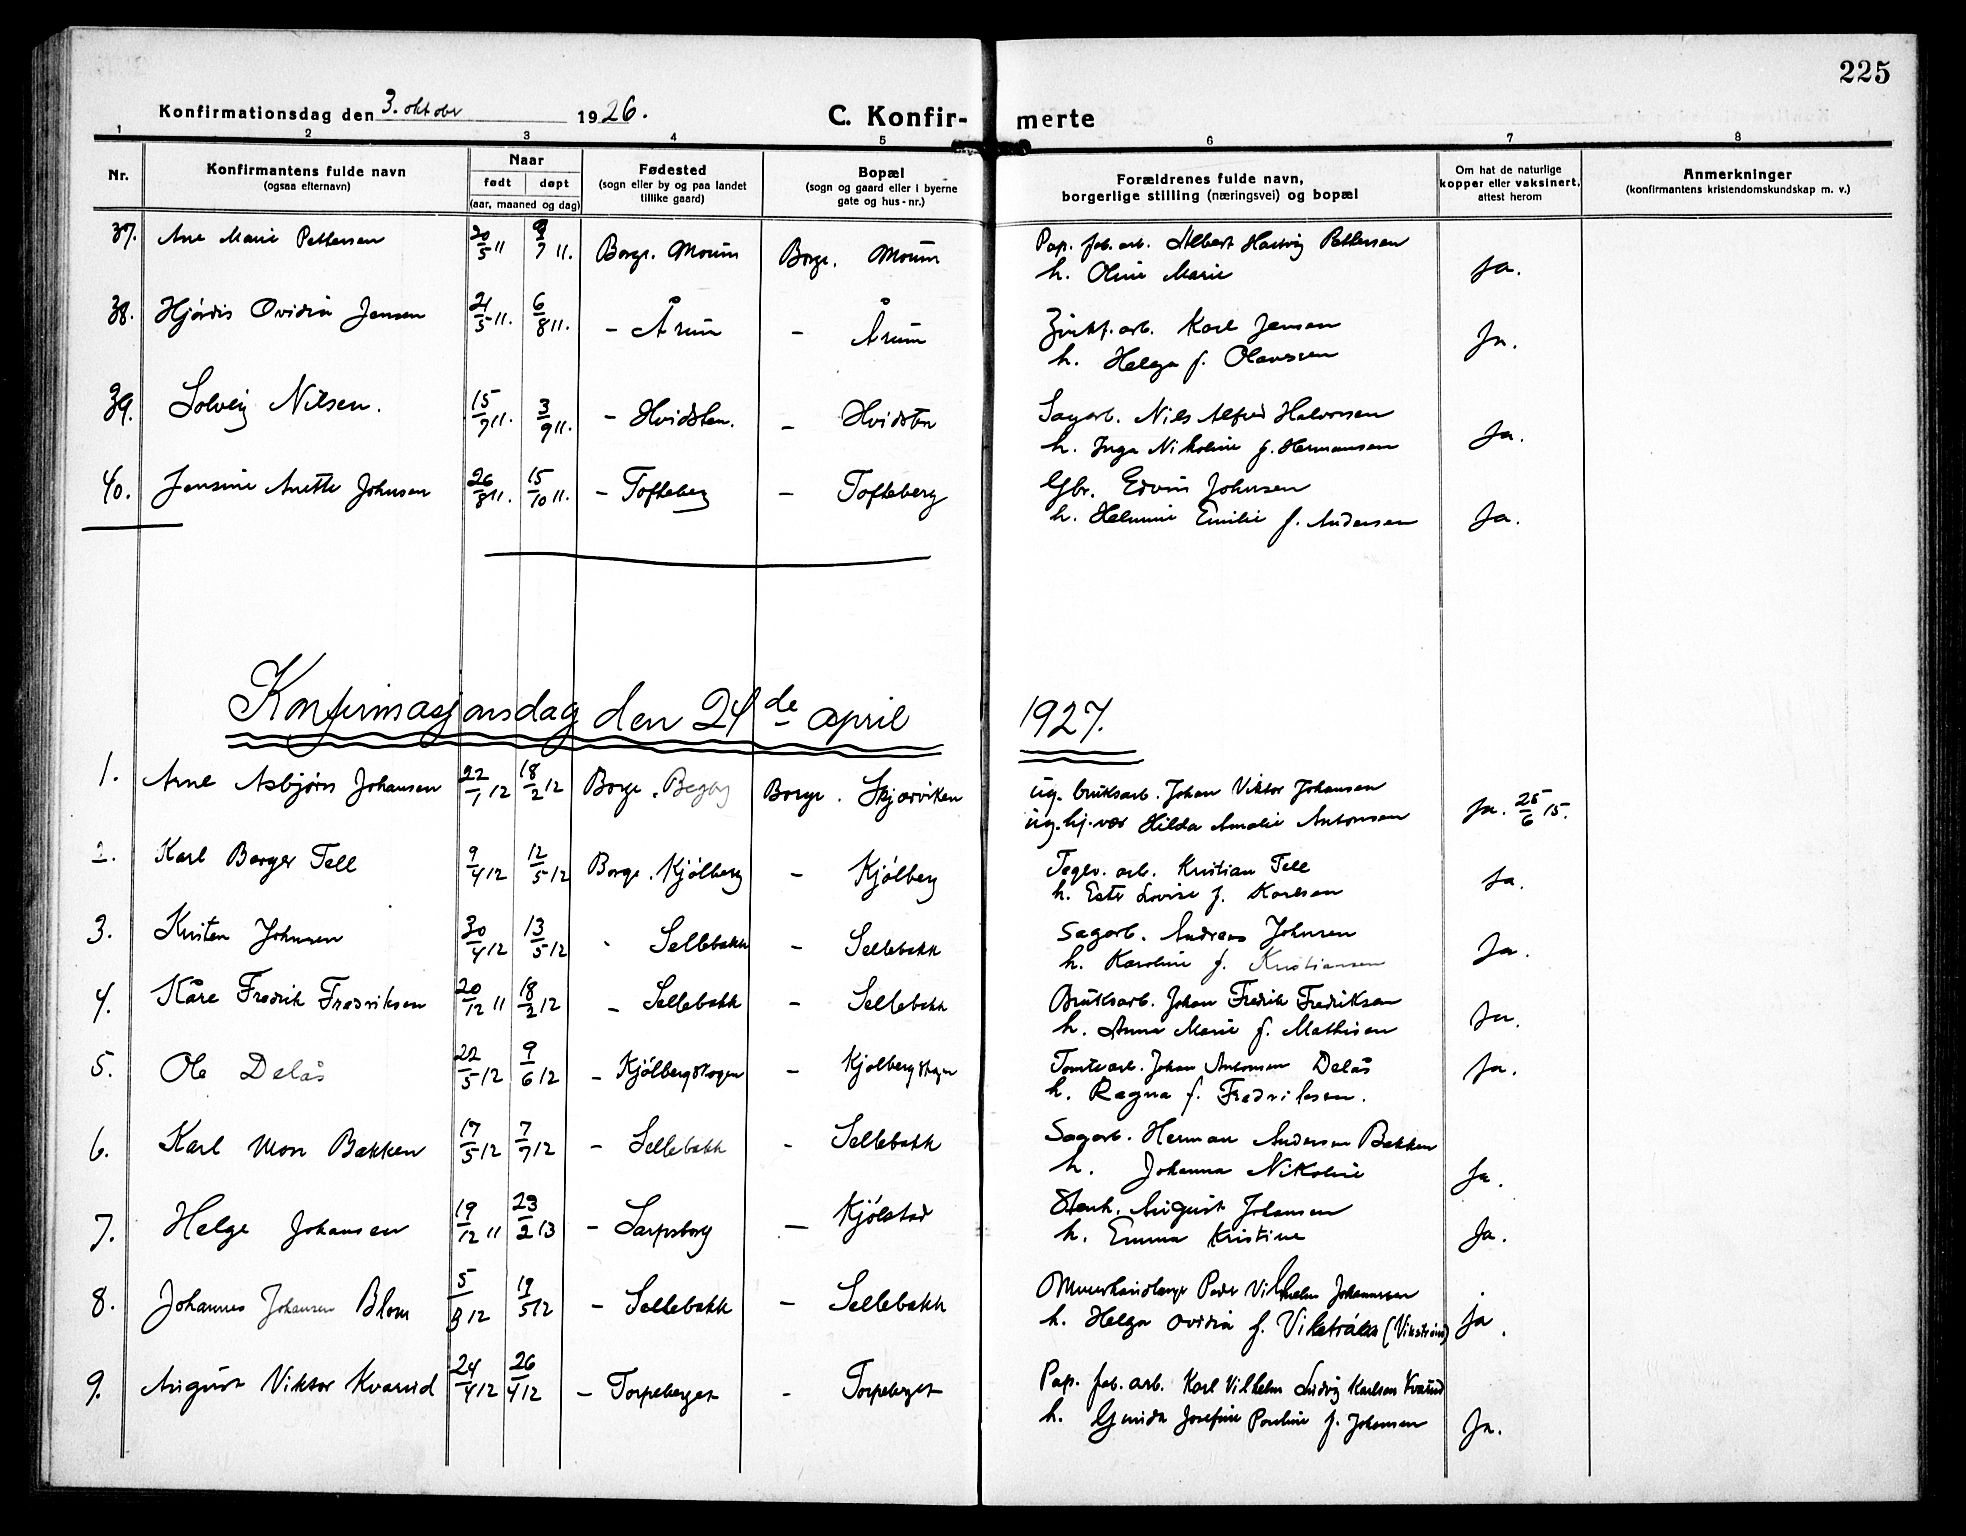 225
Konfirmationsdag den 3. oktober 1926. C. Konfirmerte
1 2 3 4 5 6 7 8
Nr. Konfirmantens fulde navn (ogsaa efternavn) Naar født døpt (aar, maaned og dag) Fødested (sogn eller by og paa landet tillike gaard) Bopæl (sogn og gaard eller i byerne gate og hus-nr.) Forældrenes fulde navn, borgerlige stilling (næringsvei) og bopæl Om hat de naturlige kopper eller vaksinert, attest herom Anmerkninger (konfirmantens kristendomskundskap m. v.)
37. Ane Marie Pettersen 20/5 11 9/7 11. Borge. Moum Borge. Moum Pap. fab. arb. Albert Hartvig Pettersen
h. Oline Marie Ja.
38. Hjördis Ovidia Jensen 21/5 11. 6/8 11. - Årum - Årum Zinkf. arb. Karl Jensen
h. Helga f. Olaussen Ja.
39. Solveig Nilsen. 15/7 11. 3/9 11. - Hvidsten. - Hvidsten Sagarb. Nils Alfred Halvorsen
h. Inga Nikoline f. Hermansen Ja.
40. Jensine Anette Johnsen 26/8 11. 15/10 11. - Tofteberg - Tofteberg Gbr. Edvin Johnsen
h. Helmine Emilie f. Andersen Ja.
Konfirmasjonsdag den 24de april 1927.
1. Arne Asbjørn Johansen 22/1 12 18/2 12 Borge. Begby Borge. Skjærviken ug. bruksarb. Johan Viktor Johansen
ug. hj. vær Hilda Amalie Antonsen Ja. 25/6 15.
2. Karl Borger Tell 9/4 12 12/5 12 Borge. Kjölberg - Kjölberg Teglv. arb. Kristian Tell
h. Ester Lovise f. Karlsen Ja.
3. Kristen Johnsen 30/4 12 13/5 12 - Sellebakk - Sellebakk Sagarb. Andreas Johnsen
h. Karoline f. Kristiansen Ja.
4. Kåre Fredrik Fredriksen 20/12 11 18/2 12 - Sellebakk - Sellebakk Bruksarb. Johan Fredrik Fredriksen
h. Anna Marie f. Mathisen Ja.
5. Ole Delås 22/5 12 9/6 12 - Kjölbergskogen - Kjölbergskogen Tomtearb. Johan Antonsen Delås Ja.
h. Ragna f. Fredriksen.
6. Karl Mon Bakken 17/5 12 7/7 12 - Sellebakk - Sellebakk Sagarb. Herman Andersen Bakken
h. Johanna Nikoline Ja.
7. Helge Johansen 19/12 11 23/2 13 - Sarpsborg - Kjölstad Stenh. August Johansen
h. Emma Kristine Ja.
8. Johannes Johansen Blom 5/3 12 19/5 12 - Sellebakk - Sellebakk Murerhandlanger Peder Vilhelm Johannesen
h. Helga Ovidia f. (Vikström) ja.
9. August Viktor Kvarud 24/4 12 26/4 12 - Torpeberget - Torpeberget Pap. fab. arb. Karl Vilhelm Ludvig Karlsen Kvarud
h. Gunida Josefine Pauline f. Johansen Ja.